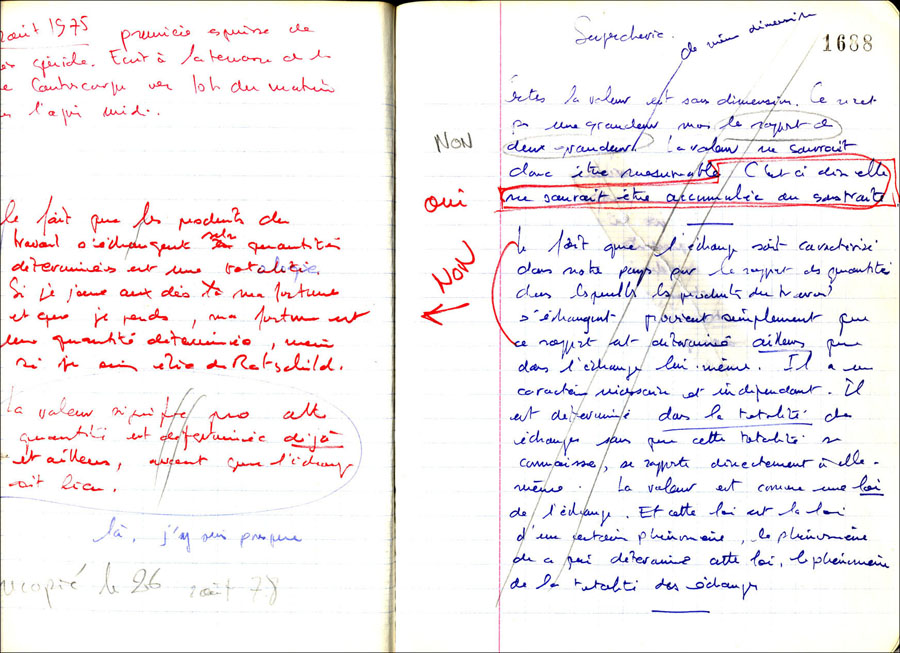 août 1975 première esquisse de
génide. Ecrit à la terrasse de la
Contrescarpe vers 10h du matin
l'après midi.
le fait que les produits du
travail s'échangent selon quantités
déterminées est une
Si je joue aux dés ma fortune
et que je perds, ma fortune est
une quantité déterminée, même
si je suis de Ratschild.
La valeur signifie que cette
quantité est déterminée déjà
et ailleurs, avant que l'échange
ait lieu.
là, j'y suis presque
recopié le 26 août 78
Supercherie.
de même dimension
1688
NON
OUI
NON
Certes la valeur est sans dimension. Ce n'est
pas une grandeur mais le rapport de
deux grandeurs. La valeur ne saurait
donc être mesurable. C'est à dire elle
ne saurait être accumulée ou soustraite
Le fait que l'échange soit caractérisé
dans notre pays par le rapport des quantités
dans lesquelles les produits du travail
s'échangent provient simplement que
ce rapport est déterminé ailleurs que
dans l'échange lui-même. Il a un
caractère nécessaire et indépendant. Il
est déterminé dans la totalité des
échanges sans que cette totalité se
connaisse, se rapporte directement à elle-
même. La valeur est comme une loi
de l'échange. Et cette loi est la loi
d'un certain phénomène, le phénomène
de ce qui détermine cette loi, le phénomène
de la totalité des échanges